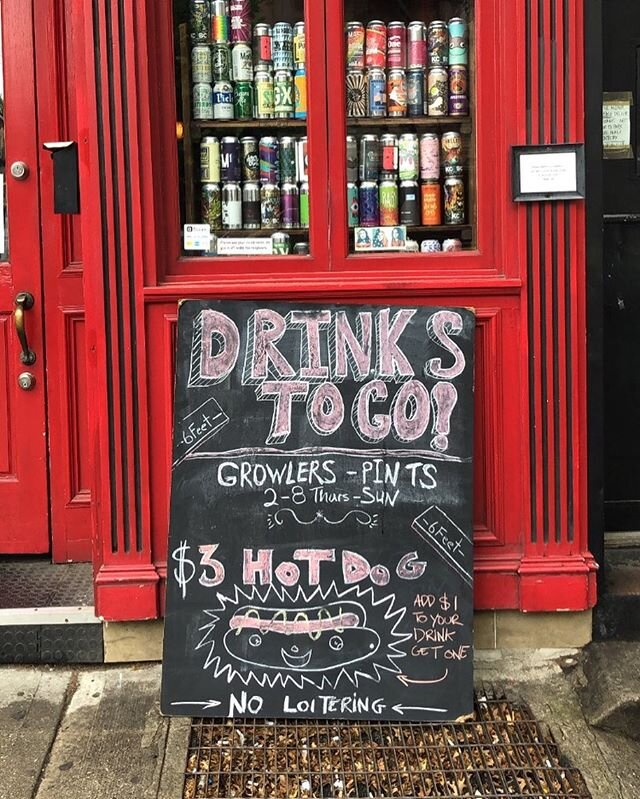 DRINKS
TO GO!
-6Feet-
GROWLERS - PINTS
2-8 Thurs-SUN
-6Feet-
$3 HOT DOG
ADD $1
TO YOUR
DRINK
GET ONE
→ NO LOITERING ←